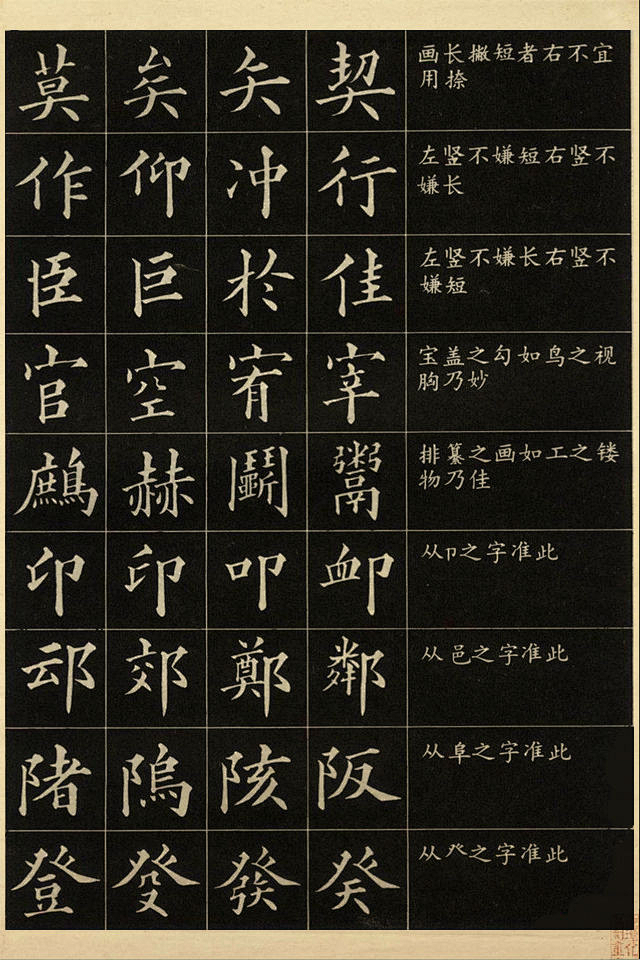 莫 矣 矢 契 画长撇短者右不宜
用捺
作 仰 冲 行 左竖不嫌短右竖不
嫌长
臣 巨 於 佳 左竖不嫌长右竖不
嫌短
官 空 宥 宰 宝盖之勾如鸟之视
胸乃妙
鷓 赫 鬭 鬻 排纂之画如工之镂
物乃佳
印 印 叩 卹 从卩之字准此
䢵 郊 鄭 鄰 从邑之字准此
陼 隖 陔 阪 从阜之字准此
登 癹 發 癸 从癶之字准此